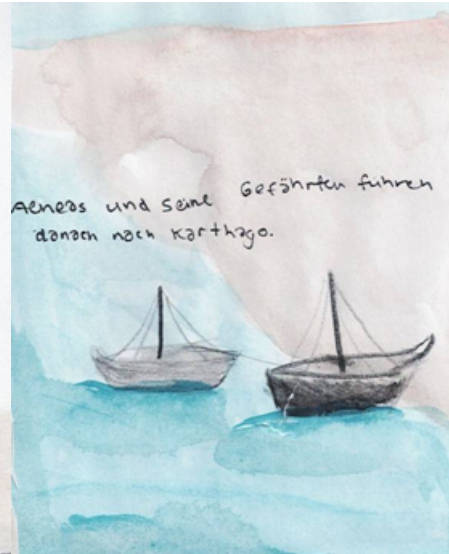 Aeneas und seine Gefährten führen
danach nach Karthago.